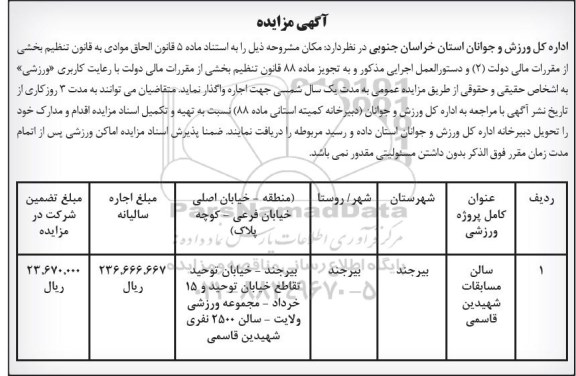 آگهی مزایده
اداره کل ورزش و جوانان استان خراسان جنوبی در نظردارد: مکان مشروحه ذیل را به استناد ماده ۵ قانون الحاق موادی به قانون تنظیم بخشی
از مقررات مالی دولت (۲) و دستورالعمل اجرایی مذکور و به تجویز ماده ۸۸ قانون تنظیم بخشی از مقررات مالی دولت با رعایت کاربری «ورزشی»
به اشخاص حقیقی و حقوقی از طریق مزایده عمومی به مدت یک سال شمسی جهت اجاره واگذار نماید. متقاضیان می توانند به مدت ۳ روزکاری از
تاریخ نشر آگهی با مراجعه به اداره کل ورزش و جوانان (دبیرخانه کمیته استانی ماده ۸۸) نسبت به تهیه و تکمیل اسناد مزایده اقدام و مدارک خود
را تحویل دبیرخانه اداره کل ورزش و جوانان استان داده و رسید مربوطه را دریافت نمایند. ضمنا پذیرش اسناد مزایده اماکن ورزشی پس از اتمام
مدت زمان مقرر فوق الذکر بدون داشتن مسئولیتی مقدور نمی باشد.
ردیف
عنوان
کامل پروژه
ورزشی
شهرستان
شهر/ روستا
(منطقه – خیابان اصلی
خیابان فرعی – کوچه
پلاک)
مبلغ اجاره
سالیانه
مبلغ تضمین
شرکت در
مزایده
۱
سالن
مسابقات
شهیدین
قاسمی
بیرجند
بیرجند
بیرجند – خیابان توحید
تقاطع خیابان توحید و ۱۵
خرداد – مجموعه ورزشی
ولایت – سالن ۲۵۰۰ نفری
شهیدین قاسمی
۲۳۶,۶۶۶,۶۶۷
ریال
۲۳,۶۷۰,۰۰۰
ریال
ParsNamadData
مرکز فرآوری اطلاعات پارس نماد داده ها
پایگاه اطلاع رسانی مناقصه و مزایده
۰۲۱-۸۸۳۴۹۶۷۰-۵